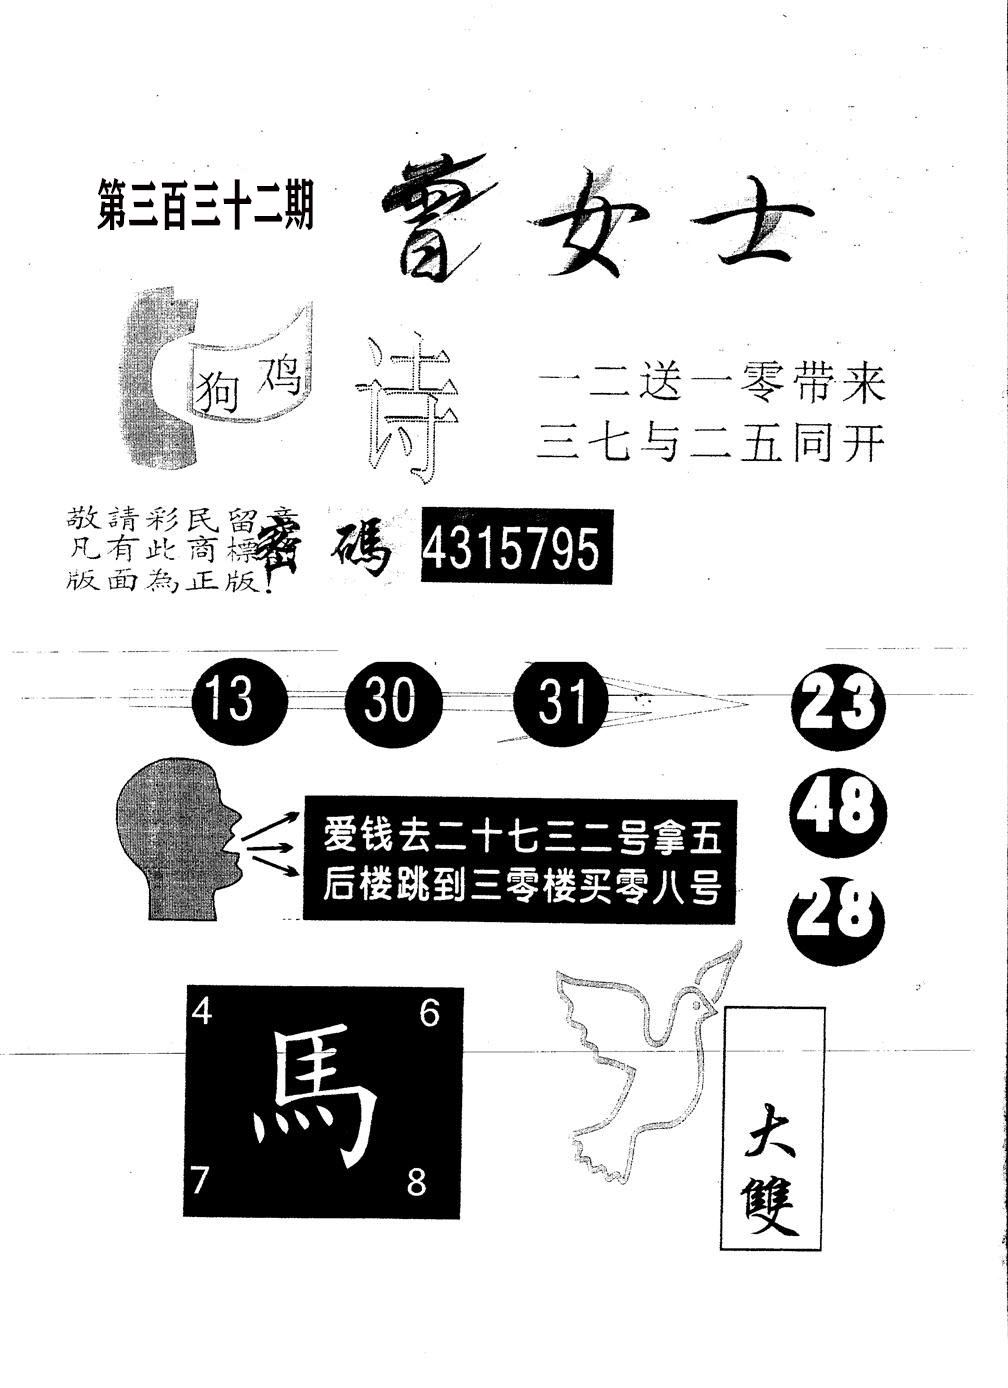 第三百三十二期
曾女士
狗 鸡
诗
一二送一零带来
三七与二五同开
敬請彩民留意
凡有此商標
版面為正版!
密碼 4315795
13 30 31
23
48
28
爱钱去二十七三二号拿五
后楼跳到三零楼买零八号
4 6
馬
7 8
大
雙